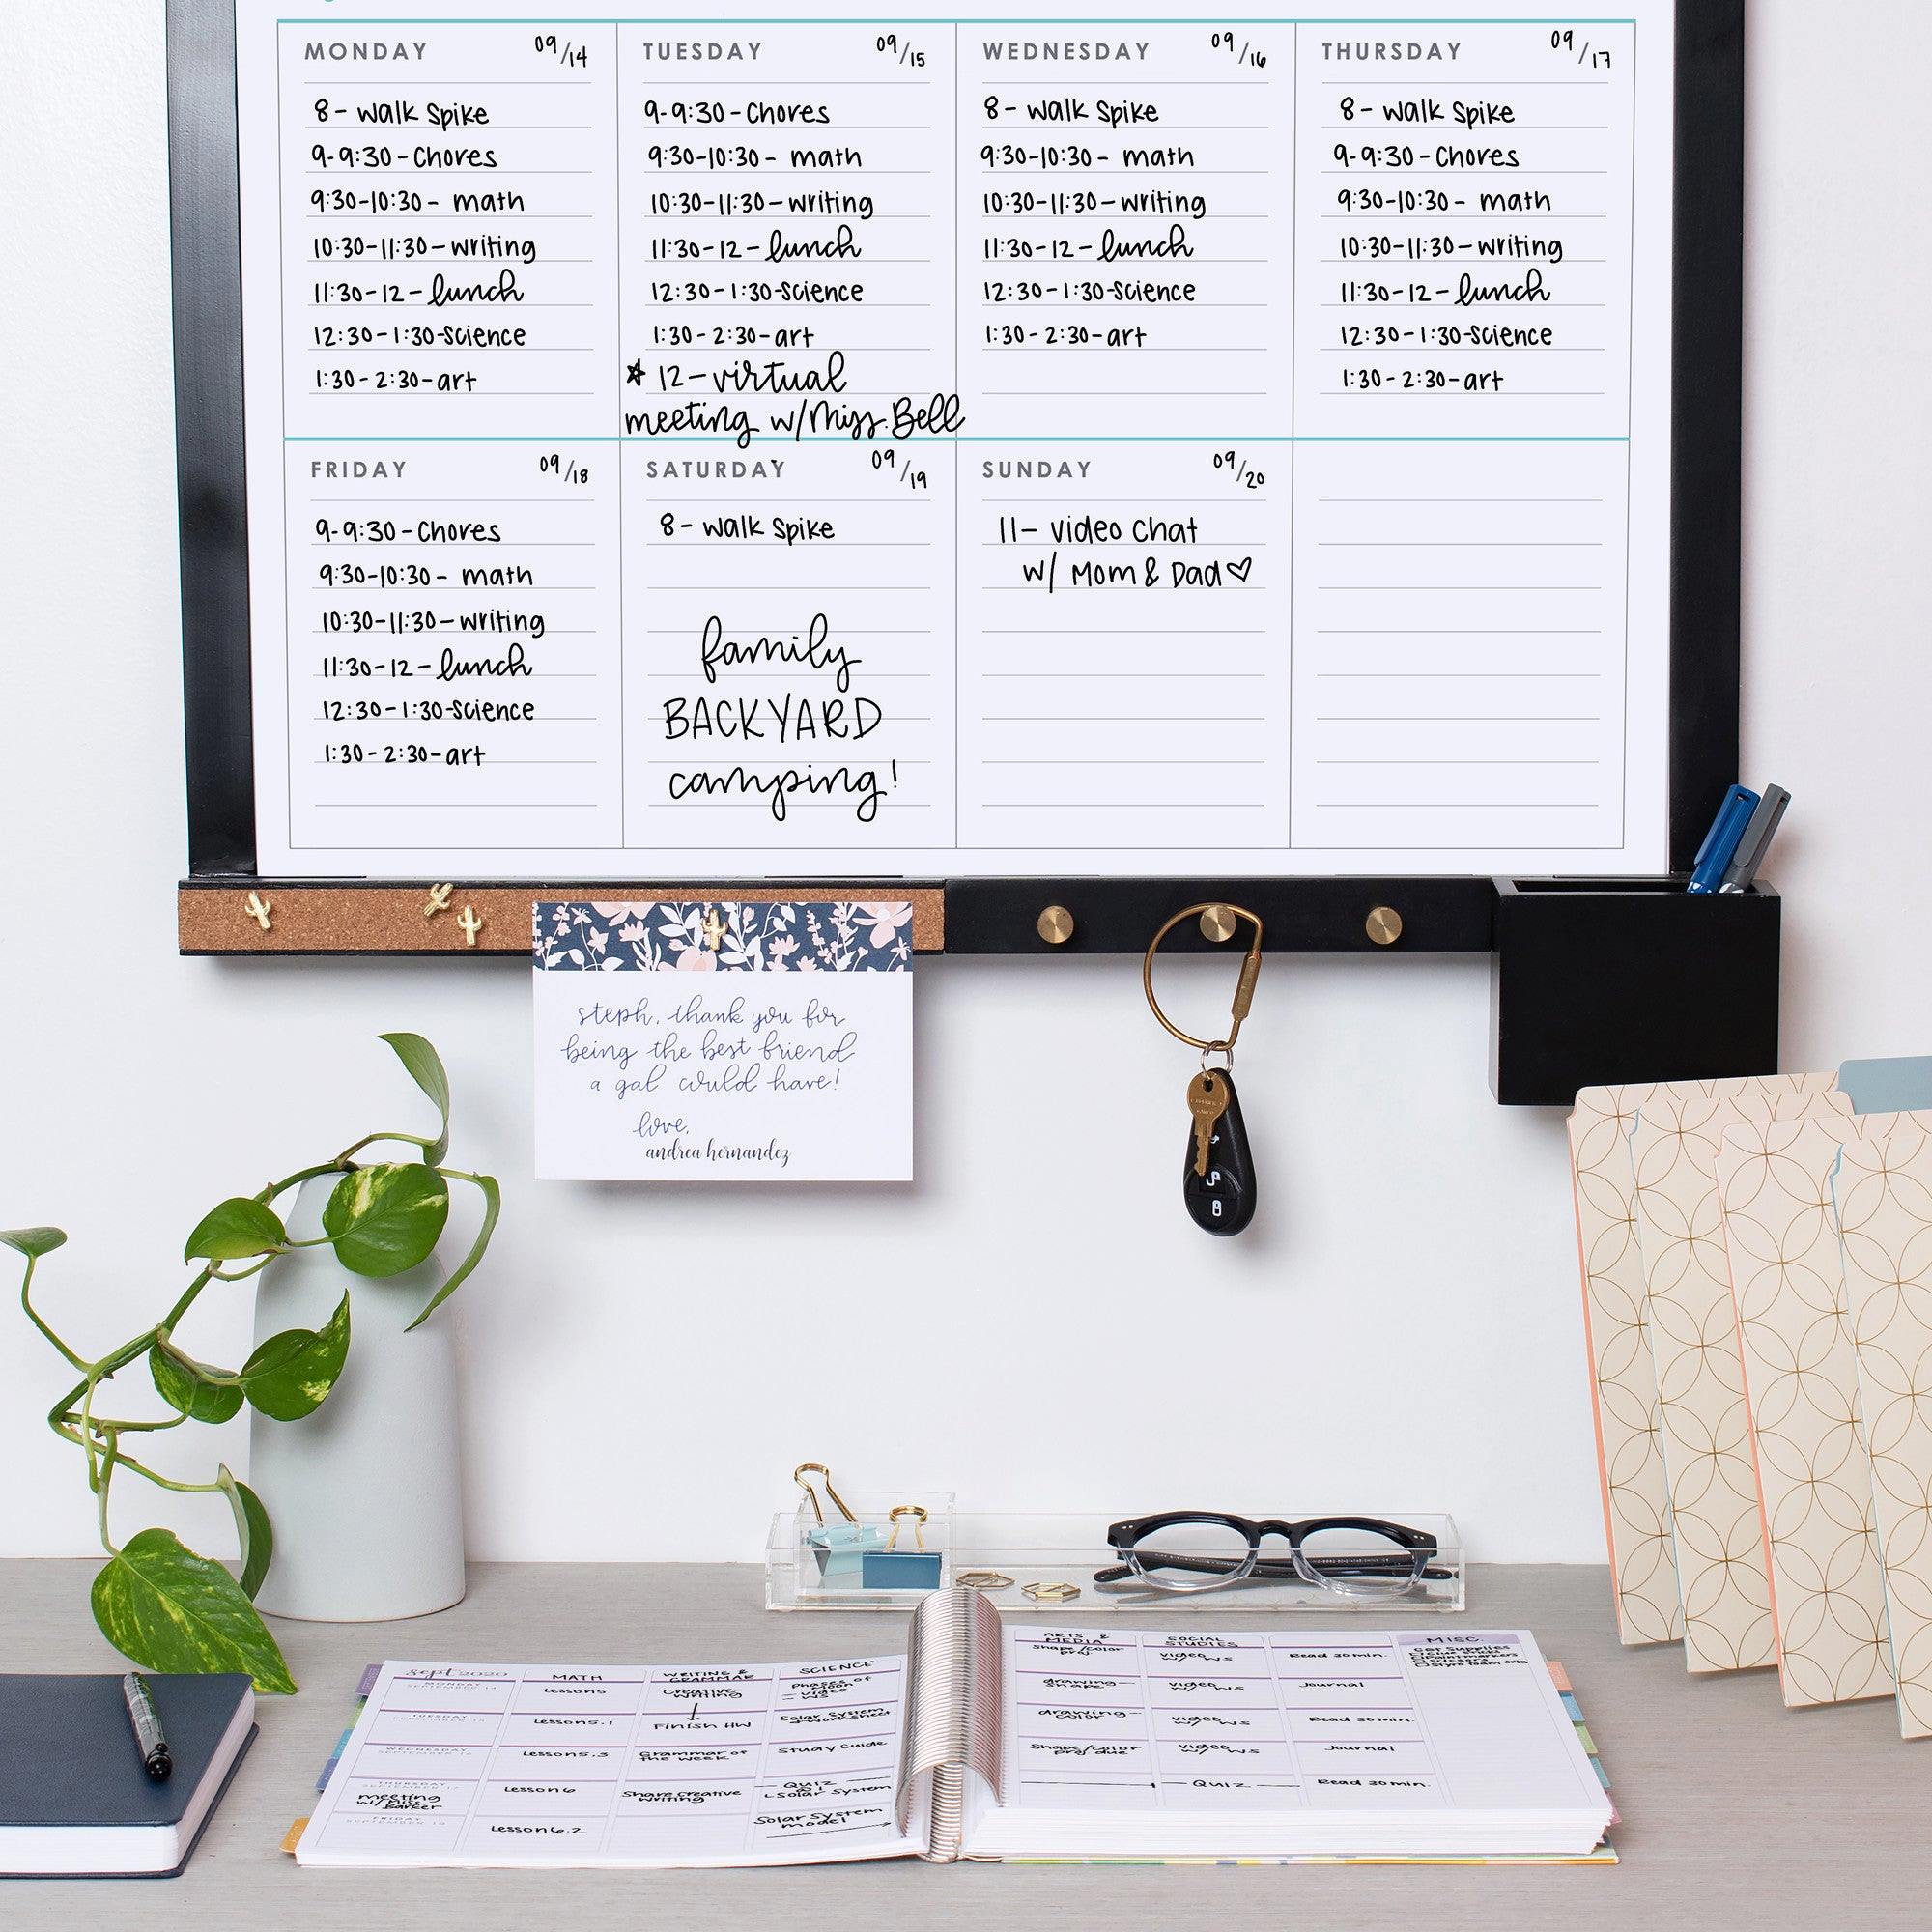 MONDAY 09/14
8- walk Spike
9-9:30-Chores
9:30-10:30- math
10:30-11:30-writing
11:30-12-lunch
12:30-1:30-Science
1:30-2:30-art
TUESDAY 09/15
9-9:30-Chores
9:30-10:30- math
10:30-11:30-writing
11:30-12-lunch
12:30-1:30-Science
1:30-2:30-art
☆ 12-virtual
meeting w/Miss. Bell
WEDNESDAY 09/16
8- walk Spike
9:30-10:30- math
10:30-11:30-writing
11:30-12-lunch
12:30-1:30-Science
1:30-2:30-art
THURSDAY 09/17
8- walk Spike
9-9:30-Chores
9:30-10:30- math
10:30-11:30-writing
11:30-12-lunch
12:30-1:30-Science
1:30-2:30-art
FRIDAY 09/18
9-9:30-Chores
9:30-10:30- math
10:30-11:30-writing
11:30-12-lunch
12:30-1:30-Science
1:30-2:30-art
SATURDAY 09/19
8- walk Spike
family
BACKYARD
camping!
SUNDAY 09/20
11- video chat
w/ Mom & Dad♡
steph, thank you for
being the best friend
a gal could have!
love,
andrea hernandez
sept 2020
MATH
WRITING &
GRAMMAR
SCIENCE
MONDAY
SEPTEMBER 14
Lesson 5
Creative
writing
Phases of
moon
- video
- WS
TUESDAY
SEPTEMBER 15
Lesson 5.1
Finish HW
Solar System
worksheet
WEDNESDAY
SEPTEMBER 16
Lesson 5.3
Grammar of
the week
Study Guide
THURSDAY
SEPTEMBER 17
meeting
w/ Miss
Barker
Lesson 6
Share creative
writing
Quiz
Solar System
FRIDAY
SEPTEMBER 18
Lesson 6.2
Solar System
model
ARTS &
MEDIA
SOCIAL
STUDIES
MISC.
Shape/color
proj.
video
w/ WS
Read 30 min.
Get Supplies
drawing-
shape
video
w/ WS
Journal
drawing-
color
video
w/ WS
Read 30 min.
Shape/color
proj due
video
w/ WS
Journal
Quiz
Read 30 min.